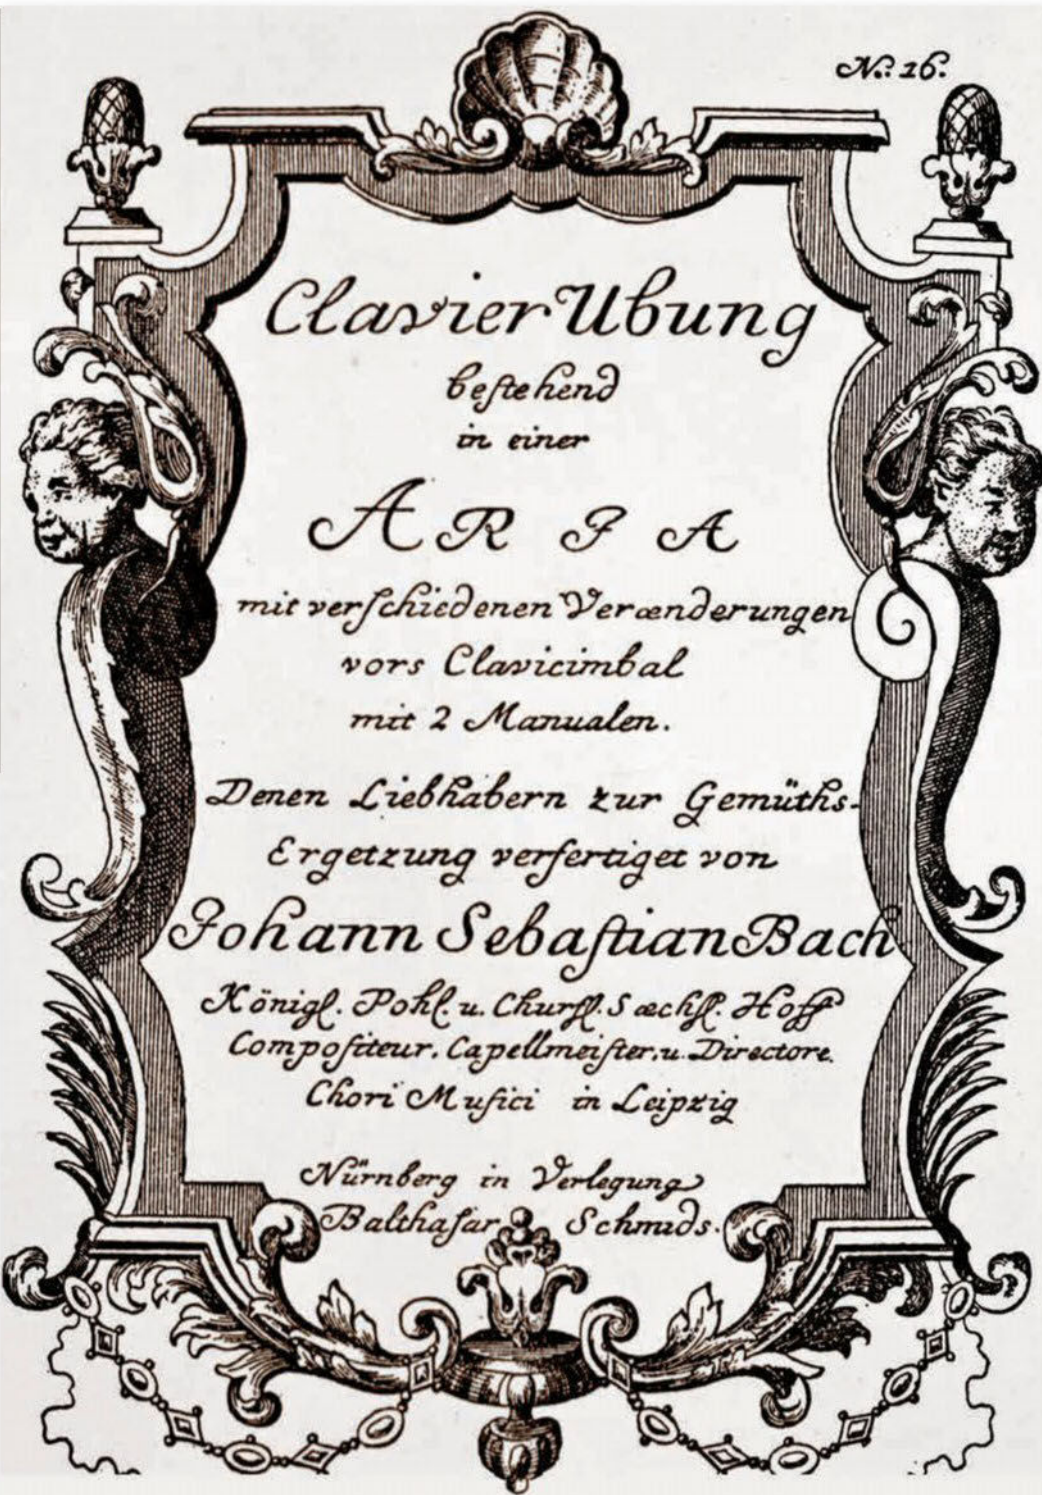 N.: 16.
Clavier Ubung
bestehend
in einer
ARIA
mit verschiedenen Veraenderungen
vors Clavicimbal
mit 2 Manualen.
Denen Liebhabern zur Gemüths-
Ergetzung verfertiget von
Johann Sebastian Bach
Königl. Pohl. u. Churfl. Saechsl. Hoff
Compositeur, Capellmeister, u. Directore
Chori Musici in Leipzig
Nürnberg in Verlegung
Balthasar Schmids.